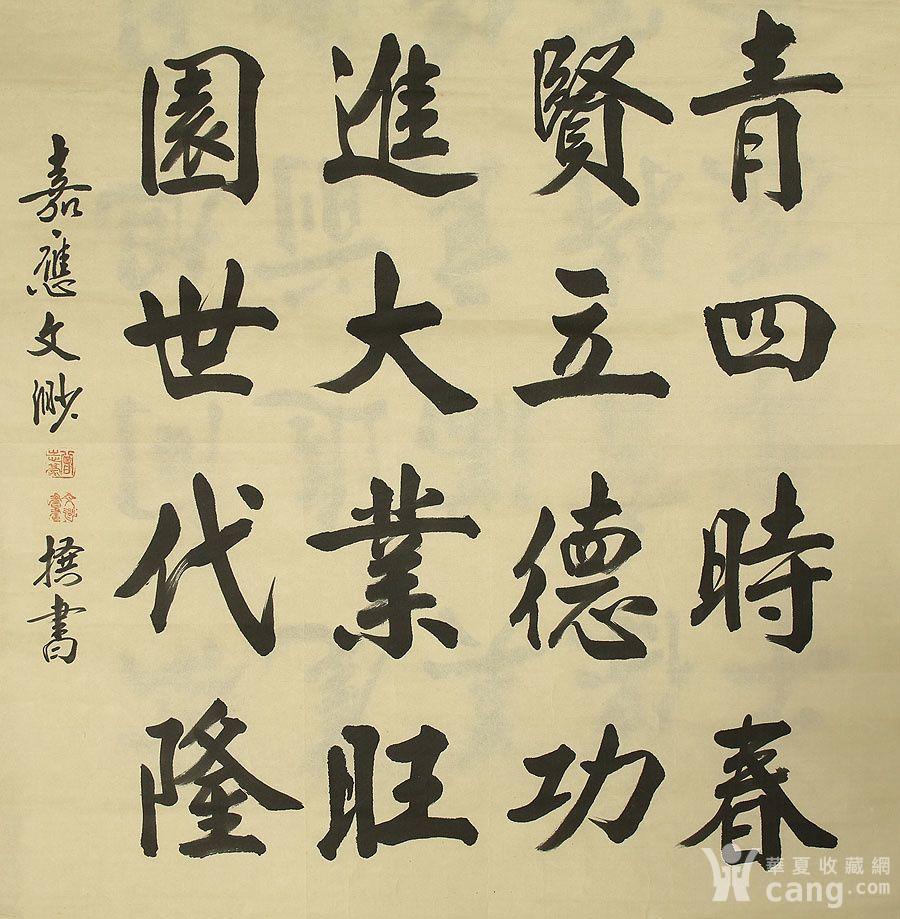 青四時春
賢立德功
進大業旺
園世代隆
嘉應文渺
撰書
華夏收藏網
cang.com